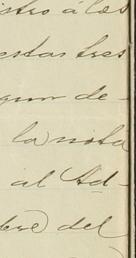 istro á las
estas tres
gun de-
la nota
al Ad-
bre del